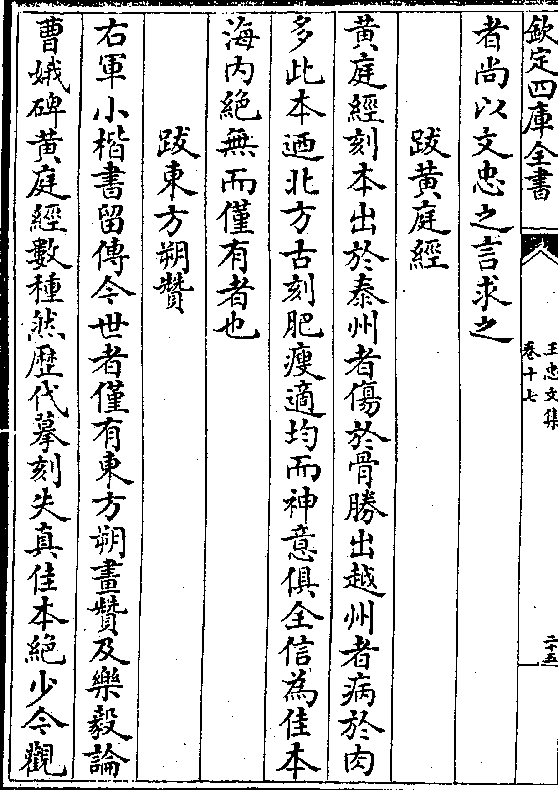 欽定四庫全書
王忠文集
卷十七
二十五
者尚以文忠之言求之
跋黄庭經
黄庭經刻本出於泰州者傷於骨勝出越州者病於肉
多此本迺北方古刻肥瘦適均而神意俱全信為佳本
海内絶無而僅有者也
跋東方朔贊
右軍小楷書留傳今世者僅有東方朔畫贊及樂毅論
曹娥碑黄庭經數種然歴代摹刻失真佳本絶少今觀